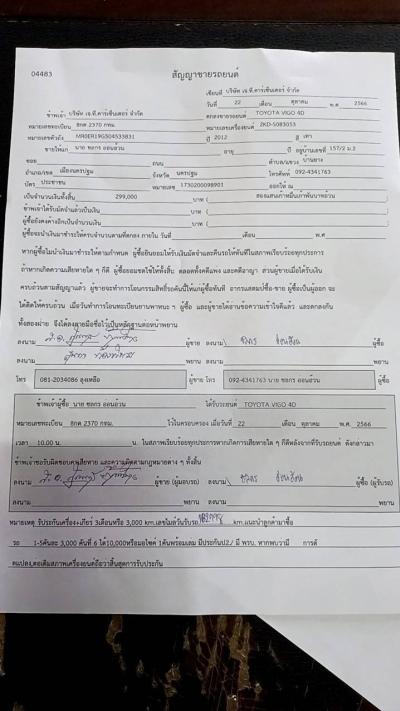 04483
สัญญาขายรถยนต์
เขียนที่ บริษัท เจ.ที.คาร์เซ็นเตอร์ จำกัด
วันที่ 22 เดือน ตุลาคม พ.ศ 2566
ข้าพเจ้า บริษัท เจ.ที.คาร์เซ็นเตอร์ จำกัด ตกลงขายรถยนต์ TOYOTA VIGO 4D
หมายเลขทะเบียน 8กด 2370 กทม. หมายเลขเครื่องยนต์ 2KD-S083053
หมายเลขตัวถัง MR0ER19G504533831 ปี 2012 สี เทา
ขายให้แก่ นาย ชลกร อ่อนอ้วน อายุ ปี อยู่บ้านเลขที่ 157/2 ม.2
ซอย ถนน ตำบล/แขวง บานยาง
อำเภอ/เขต เมืองนครปฐม จังหวัด นครปฐม โทรศัพท์ 092-4341763
บัตร ประชาชน หมายเลข 1730200098901 ออกให้ ณ
เป็นจำนวนเงินทั้งสิ้น 299,000 บาท ( สองแสนเก้าหมื่นเก้าพันบาทถ้วน )
ข้าพเจ้าได้รับมัดจำแล้วเป็นเงิน บาท ( )
ผู้ซื้อยังคงค้างอีกเป็นจำนวนเงิน บาท ( )
ผู้ซื้อจะนำเงินมาชำระให้ครบจำนวนตามที่ตกลง ภายใน วันที่ เดือน พ.ศ
หากผู้ซื้อไม่นำเงินมาชำระให้ตามกำหนด ผู้ซื้อยินยอมให้ริบเงินมัดจำและคืนรถให้ทันทีในสภาพเรียบร้อยทุกประการ
ถ้าหากเกิดความเสียหายใด ๆ ก็ดี ผู้ซื้อยอมชดใช้ให้ทั้งสิ้น ตลอดทั้งคดีแพ่ง และคดีอาญา ส่วนผู้ขายเมื่อได้รับเงิน
ครบถ้วนตามสัญญาแล้ว ผู้ขายจะทำการโอนกรรมสิทธิ์รถคันนี้ให้แก่ผู้ซื้อทันที อากรแสตมป์ซื้อ-ขาย ผู้ซื้อเป็นผู้ออก จะ
ได้คิดให้ครบถ้วน เมื่อวันทำการโอนทะเบียนยานพาหนะ ฯ ผู้ซื้อ และผู้ขายได้อ่านข้อความเข้าใจดีแล้ว และตกลงกัน
ทั้งสองฝ่าย จึงได้ลงลายมือชื่อไว้เป็นหลักฐานต่อหน้าพยาน
ลงนาม ผู้ขาย ลงนาม ชลกร อ่อนอ้วน ผู้ซื้อ
ลงนาม พยาน ลงนาม พยาน
โทร 081-2034086 ลุงเหลือ ผู้ขาย โทร 092-4341763 นาย ชลกร อ่อนอ้วน ผู้ซื้อ
ข้าพเจ้าผู้ซื้อ นาย ชลกร อ่อนอ้วน ได้รับรถยนต์ TOYOTA VIGO 4D
หมายเลขทะเบียน 8กด 2370 กทม. ไว้ในครอบครอง เมื่อวันที่ 22 เดือน ตุลาคม พ.ศ. 2566
เวลา 10.00 น. น. ในสภาพเรียบร้อยทุกประการหากเกิดการเสียหายใด ๆ ก็ดีหลังจากที่รับรถยนต์ ดังกล่าวมา
ข้าพเจ้าขอรับผิดชอบความเสียหาย และความผิดตามกฎหมายต่าง ๆ ทั้งสิ้น
ลงนาม ผู้ขาย (ผู้มอบรถ) ลงนาม ชลกร อ่อนอ้วน ผู้ซื้อ (ผู้รับรถ)
ลงนาม พยาน ลงนาม พยาน
หมายเหตุ รับประกันเครื่อง+เกียร์ 3เดือนหรือ 3,000 km.เลขไมล์วันรับรถ km.แนะนำลูกค้ามาซื้อ
รถ 1-5คันละ 3,000 คันที่ 6 ได้10,000หรือมอไซค์ 1คันพร้อมเลม มีประกัน2./ มี พรบ. หากพบว่ามี การดั
ดแปลง,ต่อเติมสภาพเครื่องยนต์ถือว่าสิ้นสุดการรับประกัน